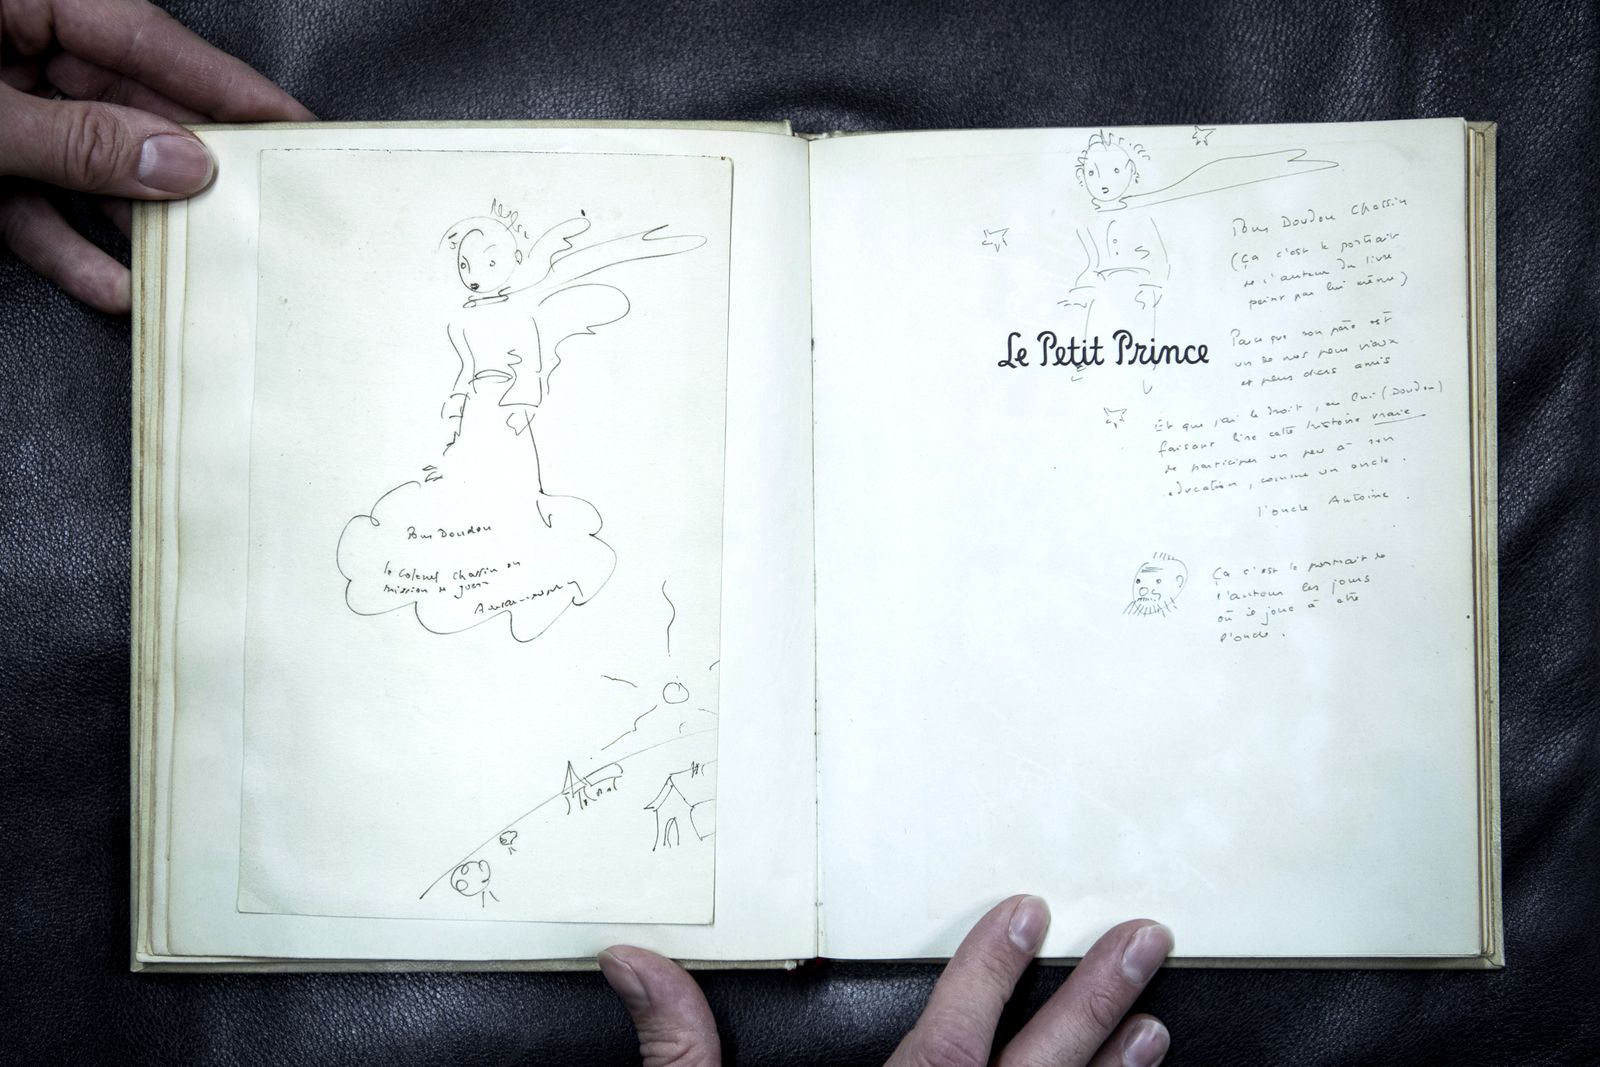 Pour Doudou
le Colonel Chassin en
mission de guerre
Le Petit Prince
Pour Doudou Chassin
(Ça c'est le portrait
de l'auteur du livre
peint par lui même)
Parce que son père est
un de mes plus vieux
et plus chers amis
Et que j'ai le droit, en lui (Doudou)
faisant lire cette histoire vraie
de participer un peu à son
education, comme un oncle.
l'oncle Antoine.
Ça c'est le portrait de
l'auteur les jours
où il joue à être
l'oncle.